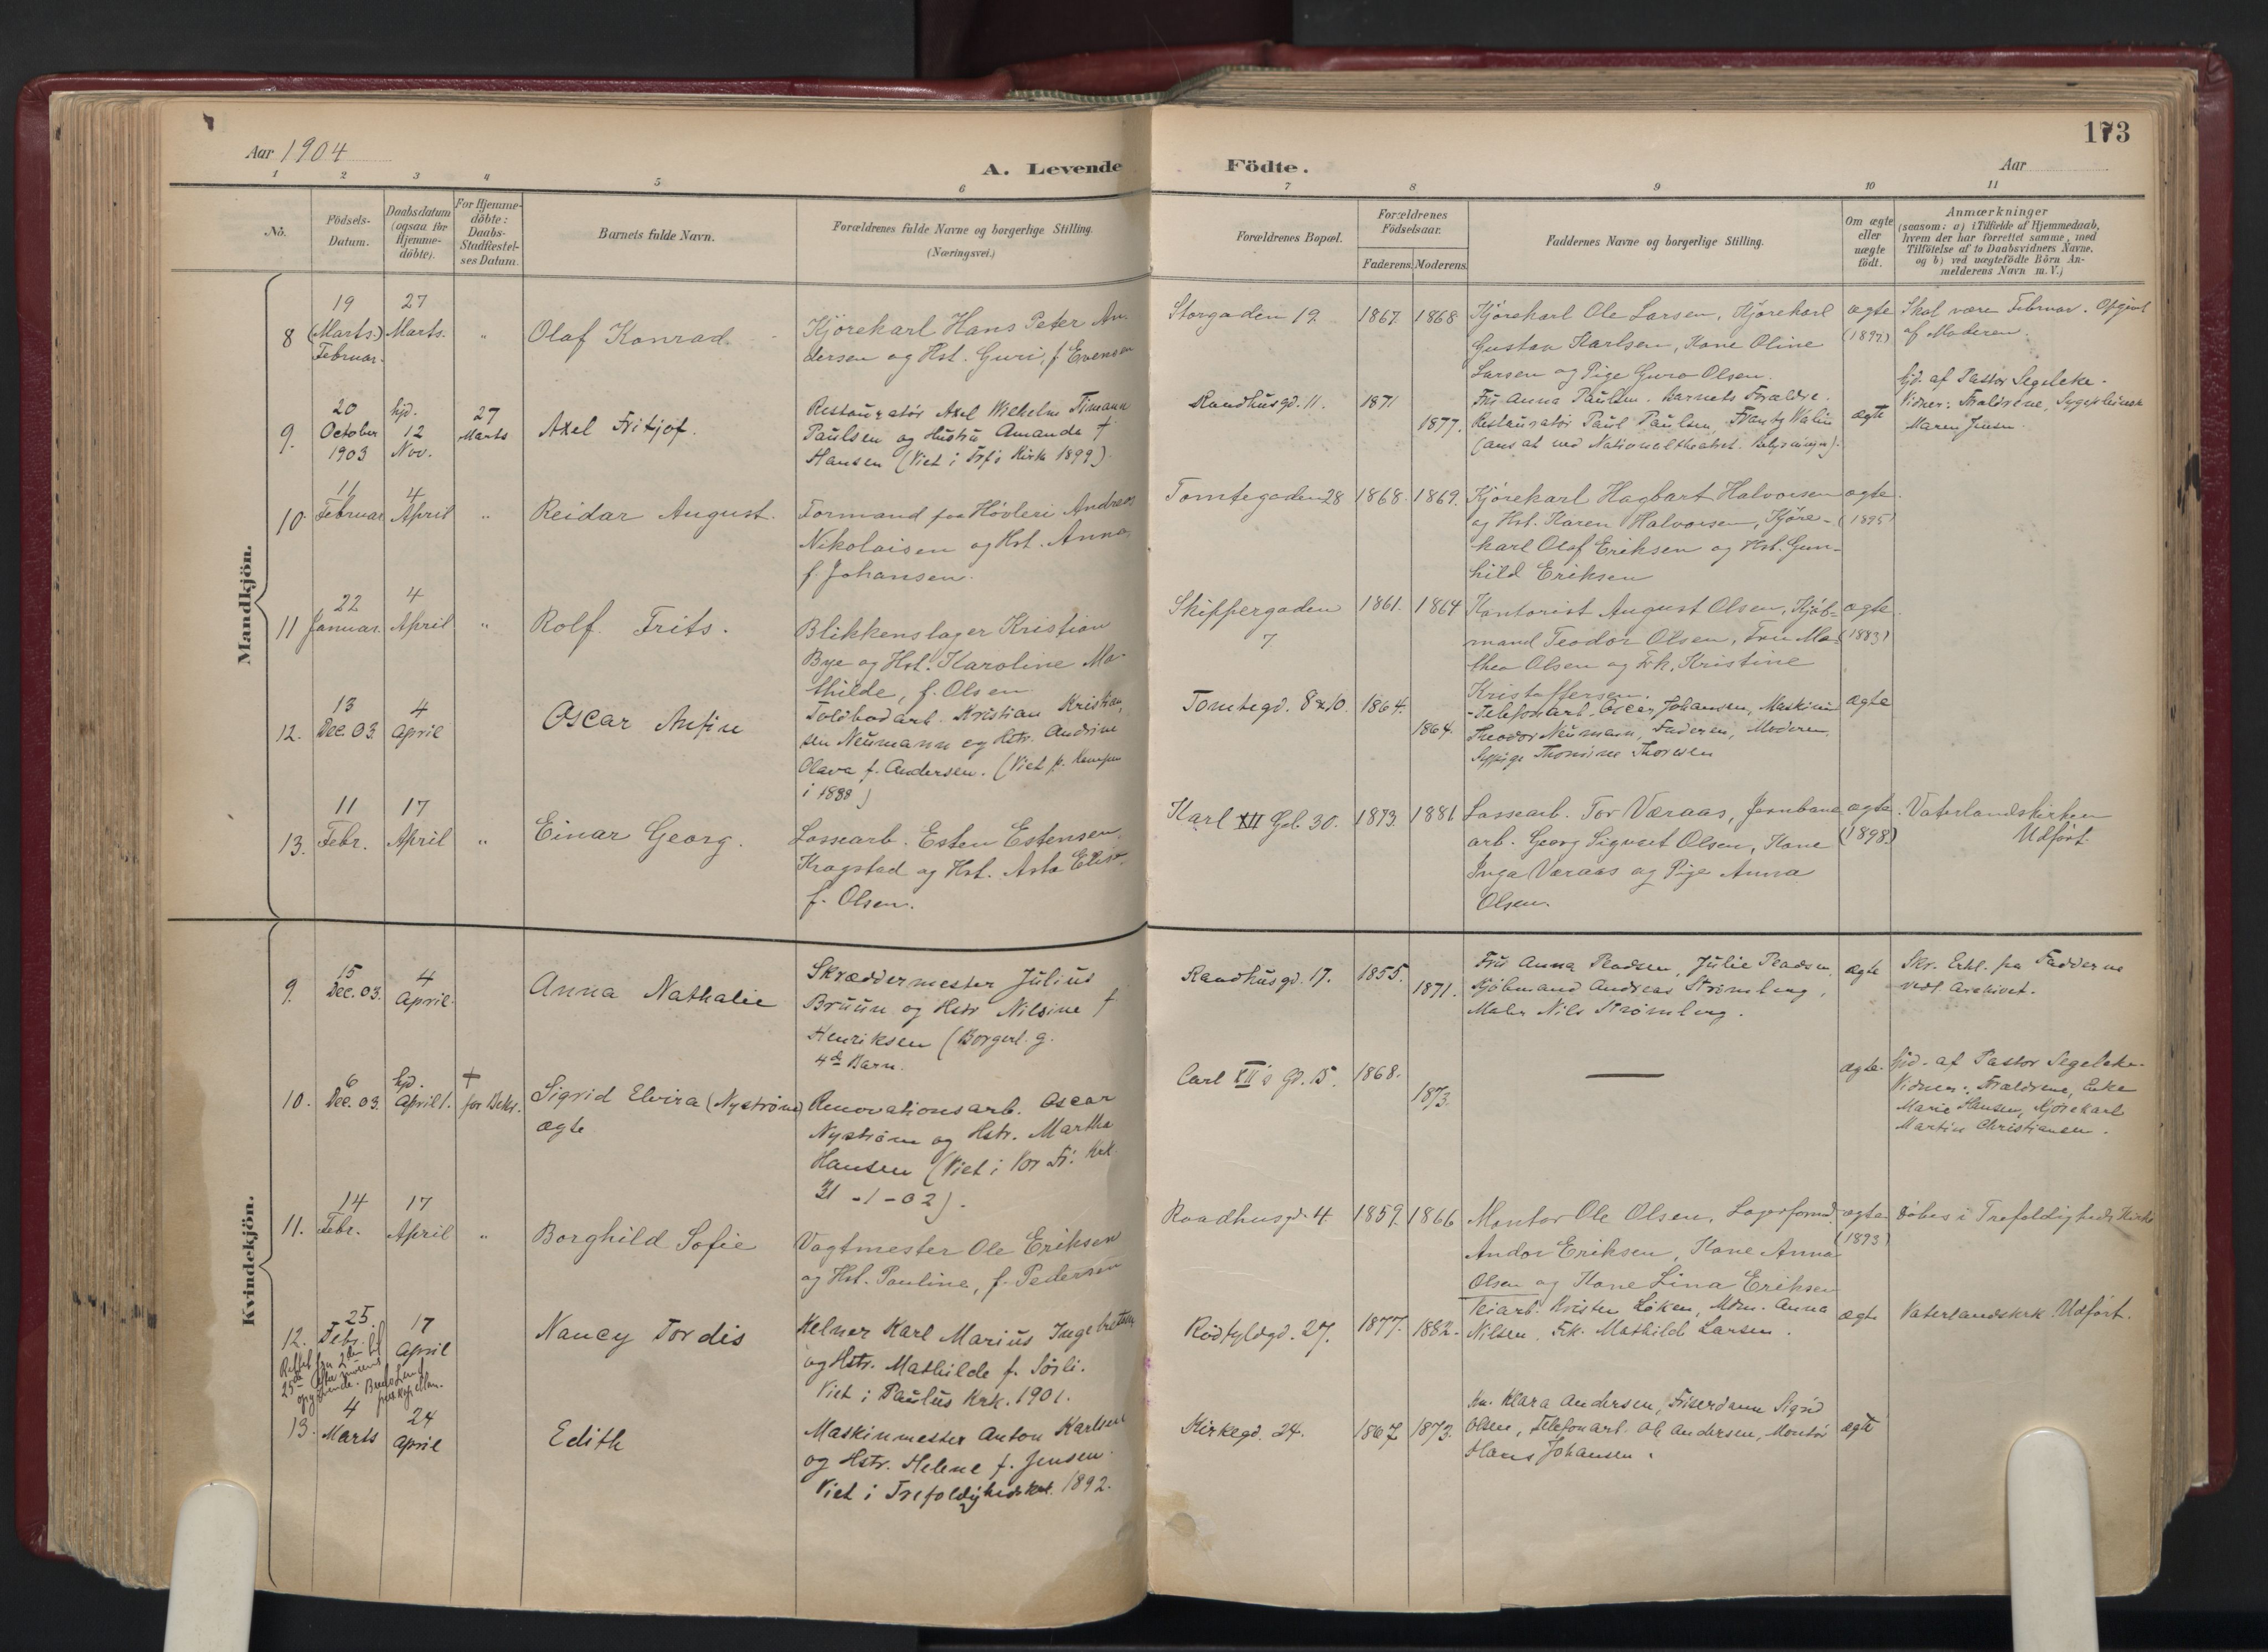 Aar 1904
A. Levende Födte.
Aar
173
1 2 3 4 5 6 7 8 9 10 11
No.
Födsels-
Datum.
Daabsdatum
(ogsaa for
Hjemme-
döbte).
For Hjemme-
döbte:
Daabs-
Stadfæstel-
ses Datum.
Barnets fulde Navn.
Forældrenes fulde Navne og borgerlige Stilling.
(Næringsvei.)
Forældrenes Bopæl.
Forældrenes
Födselsaar.
Faderens. Moderens.
Faddernes Navne og borgerlige Stilling.
Om ægte
eller
uægte
födt.
Anmærkninger
(saasom: a) i Tilfælde af Hjemmedaab,
hvem der har forrettet samme, med
Tilföielse af to Daabsvidners Navne,
og b) ved uægtefödte Börn An-
melderens Navn m. V.)
Mandkjön.
8
19
(Marts.)
Februar.
27
Marts.
"
Olaf Konrad.
Kjörekarl Hans Peter An-
dersen og Hst. Guri, f Evensen
Storgaden 19
1867. 1868
Kjörekarl Ole Larsen, Kjörekarl
Gustav Karlsen, Kone Oline
Larsen og Pige Guro Olsen.
ægte
(1892)
Skal være Februar. Opgivet
af Moderen.
9.
20
October
1903
hjd.
12
Nov.
27
Marts
Axel Fritjof.
Restauratör Axel Wilhelm Timann
Paulsen og Hustru Amanda f
Hansen (Viet i Trf's Kirk 1899)
Raadhusgd. 11.
1871
1877.
Fru Anna Paulsen. Barnets Forældre.
Restauratör Paul Paulsen, Frantz Walin
(ans at ved Nationaltheatret. Belysningen).
ægte
hjd. af Pastor Segelcke.
Vidner: Forældrene, Sygepleierske
Maren Jensen
10.
11
Februar
4
April
"
Reidar August.
Formand paa Hövleri Andreas
Nikolaisen og Hst. Anna,
f. Johansen.
Tomtegaden 28
1868. 1869.
Kjörekarl Hagbart Halvorsen
og Hst. Karen Halvorsen, Kjöre-
karl Olaf Eriksen og Hst. Gun-
hild Eriksen
ægte.
(1895)
11
22
Januar.
4
April
"
Rolf Frits.
Blikkenslager Kristian
Bye og Hst. Karoline Ma-
thilde, f. Olsen
Skippergaden
7
1861. 1864
Kontorist August Olsen, Kjöb-
mand Teodor Olsen, Fru Ma-
thea Olsen og Frk. Kristine
Kristoffersen.
ægte.
(1883)
12.
13
Dec. 03.
4
April
Oscar Anfin
Toldbodarb. Kristian Kristian-
sen Neumann og Hstr. Andrine
Olava f. Andersen. (Viet p. Kampen
i 1888)
Tomtegd. 8 x 10.
1864.
1864.
Telefonarb. Oscar Johansen, Maskinm
Theodor Neumann, Faderen, Moderen,
Sypige Thomine Thoresen
ægte
13.
11
Febr.
17
April
"
Einar Georg.
Lossearb. Esten Estensen
Kragstad og Hst. Asta Elise
f. Olsen.
Karl XII Gd. 30.
1873. 1881
Lossearb. Tor Væraas, Jernbane
arb. Georg Sigvart Olsen, Kone
Inga Væraas og Pige Anna
Olsen.
ægte.
(1898)
Vaterlandskirken
Udfört.
Kvindekjön.
9.
15
Dec. 03.
4
April.
Anna Nathalie
Skræddermester Julius
Bruun og Hstr Nilsine f
Henriksen (Borgerl. g.
4de Barn.
Raadhusgd. 17.
1855.
1871.
Fru Anna Pladsen, Julie Pladsen,
Kjöbmand Andreas Strömberg,
Maler Nils Strömberg.
ægte
Skr. Erkl. fra Fadderne
vedl. Archivet.
10.
6
Dec. 03.
hjd.
April 1.
+
för Bekr.
Sigrid Elvira (Nyström)
ægte
Renovationsarb. Oscar
Nyström og Hstr. Martha
Hansen (Viet i Vor Fr. Krk
31 - 1 - 02).
Carl XII's Gd. 15.
1868.
1873.
—
ægte.
hjd. af Pastor Segelcke.
Vidner: Forældrene, Enke
Marie Hansen, Kjörekarl
Martin Christiansen.
11.
14
Febr.
17
April
"
Borghild Sofie
Vagtmester Ole Eriksen
og Hst. Pauline, f. Pedersen
Raadhusgd. 4
1859. 1866
Montör Ole Olsen, Lagerformd.
Andor Eriksen, Kone Anna
Olsen og Kone Lina Eriksen
ægte
(1893)
döbes i Trefoldigheds Kirke
12.
25.
Febr.
17
April
Rettet fra 2den til
25de efter
opgivende.
Nancy Tordis
Kelner Karl Marius Ingebretsen
og Hstr. Mathilde f. Sörli.
Viet i Paulus Krk. 1901.
Rödfyldgd. 27.
1877. 1882.
Veiarb. Krister Löken, Mdm. Anna
Nilsen, Frk. Mathilde Larsen.
ægte
Vaterlandskrk. Udfört.
13.
4
Marts
24
April
Edith
Maskinmester Anton Karlsen
og Hstr. Helene f. Jensen.
Viet i Trefoldighedskrk. 1892.
Kirkegd. 24.
1867 1873.
Klara Andersen, Friserdame Sigrid
Olsen, Telefonarb. Ole Andersen, Montör
Hans Johansen.
ægte